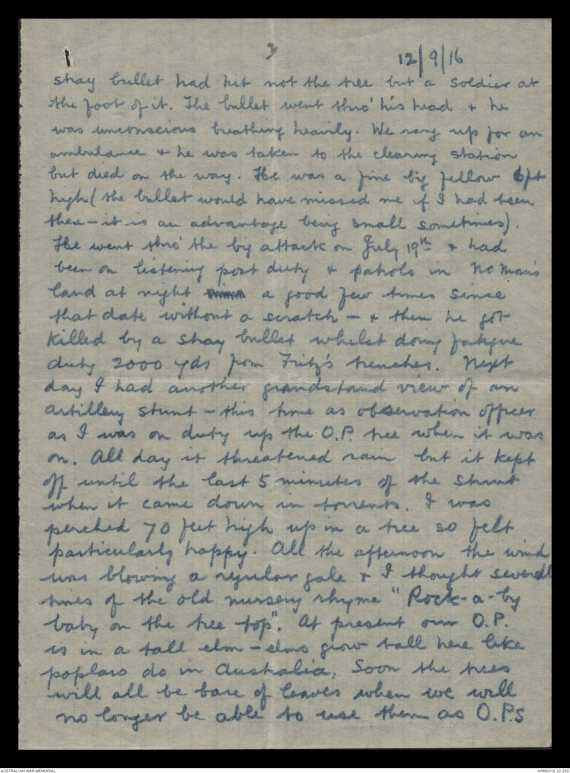 2
12/9/16
stray bullet had hit not the tree but a soldier at
the foot of it. The bullet went thro' his head & he
was unconscious breathing heavily. We rang up for an
ambulance & he was taken to the clearing station
but died on the way. He was a fine big fellow 6ft
high (the bullet would have missed me if I had been
there - it is an advantage being small sometimes).
He went thro' the big attack on July 19th & had
been on listening post duty & patrols in No man's
land at night a good few times since
that date without a scratch - & then he got
killed by a stray bullet whilst doing fatigue
duty 2000 yds from Fritz's trenches. Next
day I had another grandstand view of an
artillery stunt - this time as observation officer
as I was on duty up the O.P. tree when it was
on. All day it threatened rain but it kept
off until the last 5 minutes of the stunt
when it came down in torrents. I was
perched 70 feet high up in a tree so felt
particularly happy. All the afternoon the wind
was blowing a regular gale & I thought several
times of the old nursery rhyme "Rock-a-by
baby on the tree top". At present our O.P.
is in a tall elm - elms grow tall here like
poplars do in Australia. Soon the trees
will all be bare of leaves when we will
no longer be able to use them as O.P.s
AUSTRALIAN WAR MEMORIAL